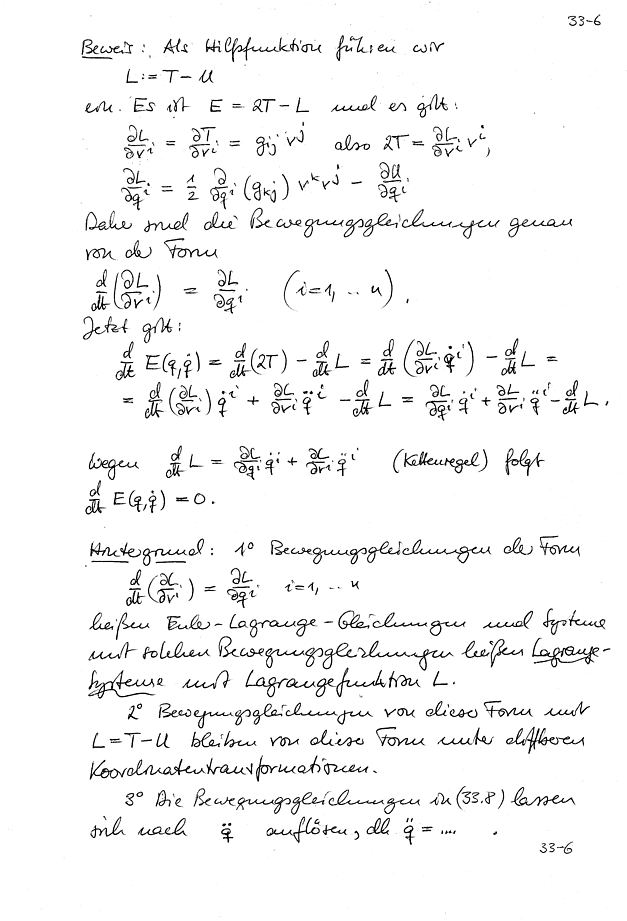 33-6
Beweis: Als Hilfsfunktion führen wir
L := T − U
ein. Es ist E = 2T − L und es gilt:
∂L/∂vⁱ = ∂T/∂vⁱ = gᵢⱼ vʲ also 2T = ∂L/∂vⁱ vⁱ,
∂L/∂qⁱ = 1/2 ∂/∂qⁱ (gₖⱼ) vᵏvʲ − ∂U/∂qⁱ
Daher sind die Bewegungsgleichungen genau
von der Form
d/dt (∂L/∂vⁱ) = ∂L/∂qⁱ (i=1, .. n),
Jetzt gilt:
d/dt E(q,q̇) = d/dt (2T) − d/dt L = d/dt (∂L/∂vⁱ q̇ⁱ) − d/dt L =
= d/dt (∂L/∂vⁱ) q̇ⁱ + ∂L/∂vⁱ q̈ⁱ − d/dt L = ∂L/∂qⁱ q̇ⁱ + ∂L/∂vⁱ q̈ⁱ − d/dt L.
Wegen d/dt L = ∂L/∂qⁱ q̇ⁱ + ∂L/∂vⁱ q̈ⁱ (Kettenregel) folgt
d/dt E(q,q̇) = 0.
Hintergrund: 1° Bewegungsgleichungen der Form
d/dt (∂L/∂vⁱ) = ∂L/∂qⁱ i=1, .. n
heißen Euler-Lagrange-Gleichungen und Systeme
mit solchen Bewegungsgleichungen heißen Lagrange-
Systeme mit Lagrangefunktion L.
2° Bewegungsgleichungen von dieser Form mit
L=T−U bleiben von dieser Form unter diffbaren
Koordinatentransformationen.
3° Die Bewegungsgleichungen in (33.8) lassen
sich nach q̈ auflösen, dh q̈ = .... .
33-6